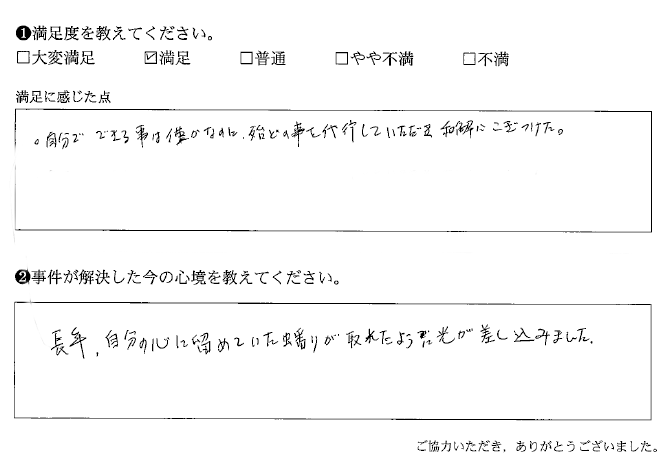 ❶満足度を教えてください。
□大変満足 ☑満足 □普通 □やや不満 □不満
満足に感じた点
。自分で できる事は僅かなのに、殆どの事を代行していただき 和解に こぎつけた。
❷事件が解決した今の心境を教えてください。
長年、自分の心に留めていた蟠りが 取れたよう 光が差し込みました。
ご協力いただき，ありがとうございました。